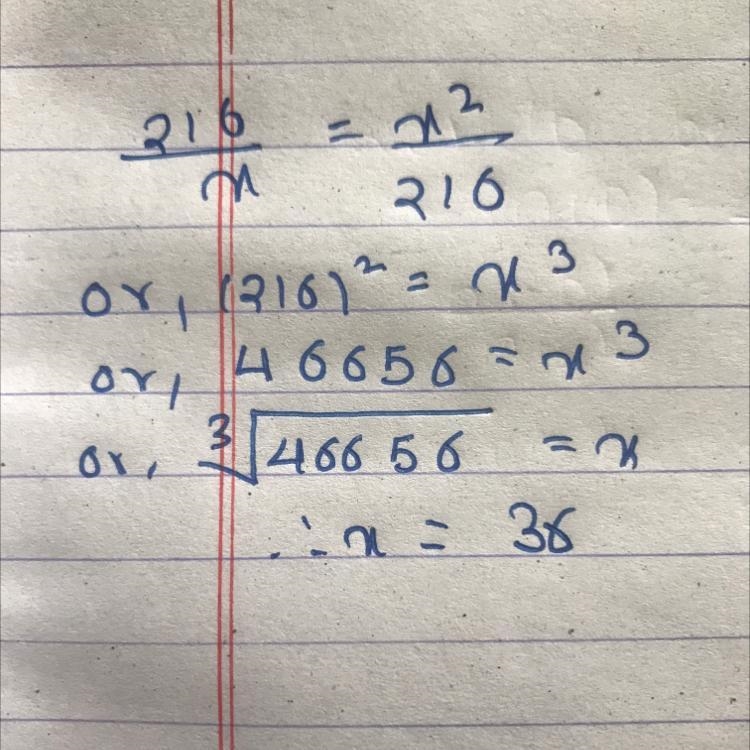 216/x = x²/216
or, (216)² = x³
or, 46656 = x³
or, ³√46656 = x
∴ x = 36